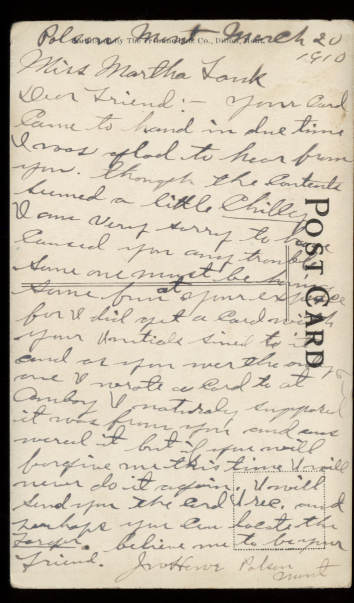 Polson Mont March 20
1910
Miss Martha
Dear Friend :- Your Card
Came to hand in due time
I was glad to hear from
you. though the Contents
seemed a little Chilley
I am very sorry to have
Caused you any trouble
Some one must be having
some fun at your expence
for I did get a Card with
your Unitials sined to it
and as you wer the only
one I wrote a Card to at
I naturaly supposed
it was from you and ans
wered it but if you will
forgive me this time I will
never do it again. I will
send you the card I rec. and
perhaps you can locate the
Forger. believe me to be your
friend. Jno Howe Polson
Mont
POST CARD